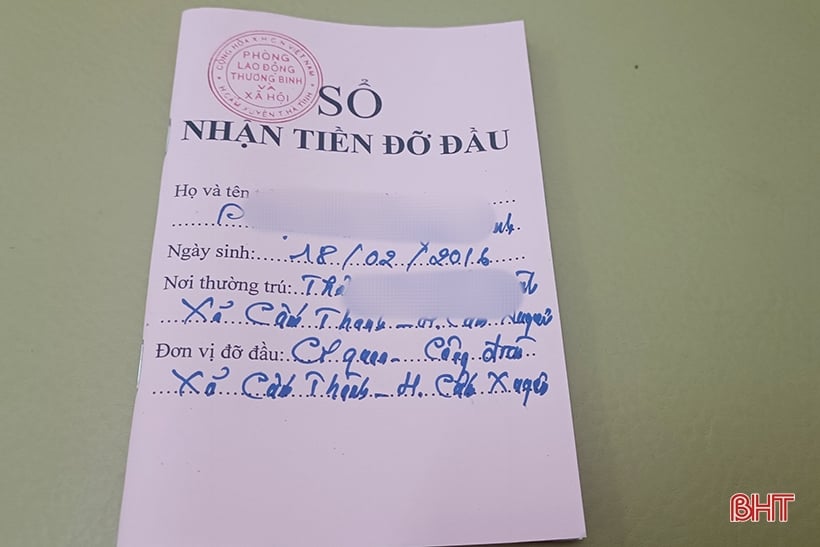 CỘNG HÒA X.H.C.N VIỆT NAM
PHÒNG
LAO ĐỘNG
THƯƠNG BINH
VÀ
XÃ HỘI
H. CẨM XUYÊN T. HÀ TĨNH
SỔ
NHẬN TIỀN ĐỠ ĐẦU
Họ và tên
Ngày sinh: 18/02/2016
Nơi thường trú: Thôn
Xã Cẩm Thành - H. Cẩm Xuyên
Đơn vị đỡ đầu: Cơ quan - Công đoàn
Xã Cẩm Thành - H. Cẩm Xuyên
BHT